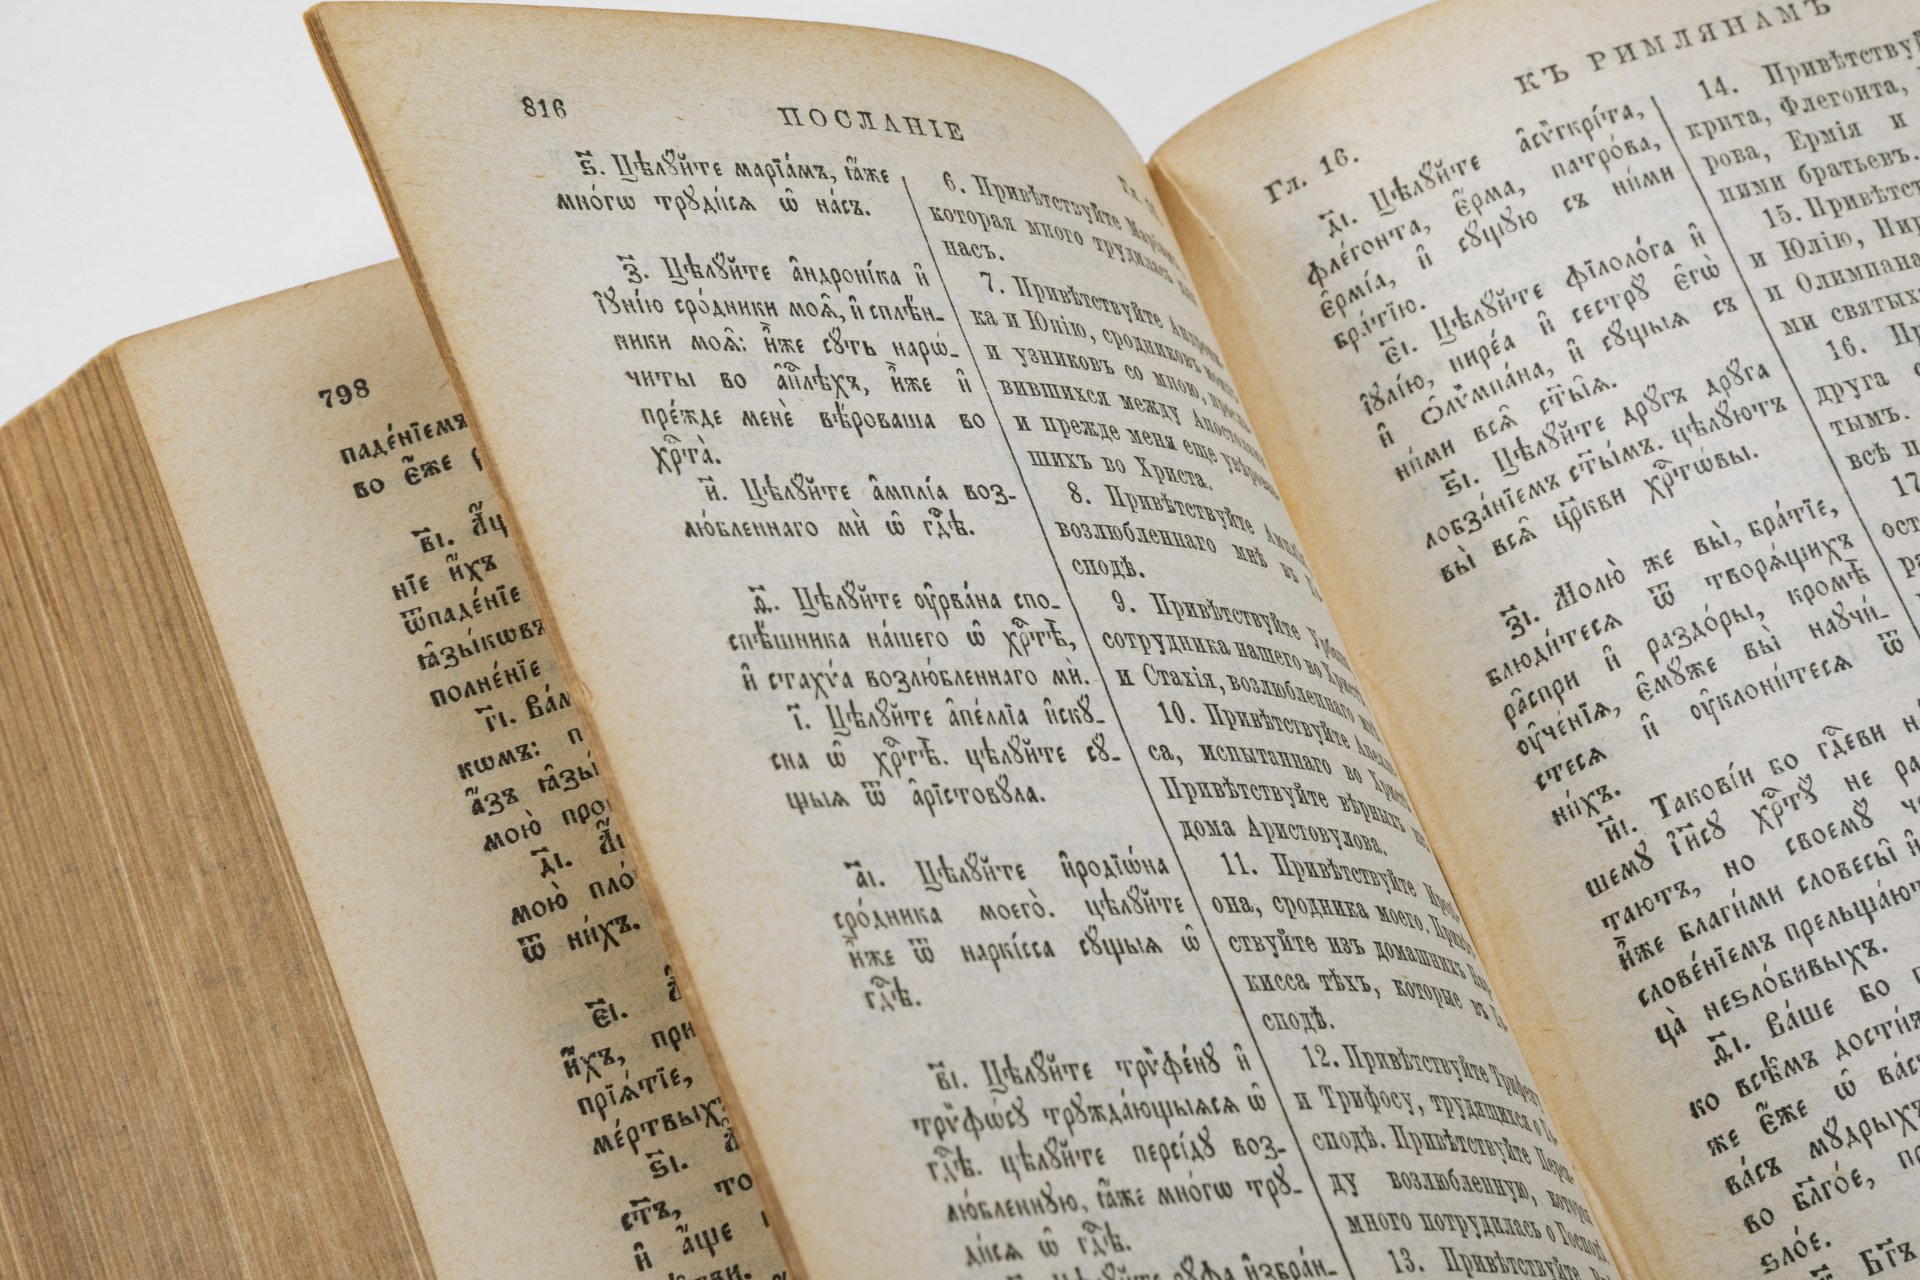 798
паде́нїемъ
во є҆́же
в҃і. А҆́ще
нїе и҆́хъ
ѿпаде́нїе
ꙗ҆зы́кѡвъ
полне́нїе
г҃і. Ва́мъ
кѡмъ:
а҆́зъ ꙗ҆зы́
мою̀
д҃і.
мою̀ пло́
ѿ ни́хъ.
є҃і.
и҆́хъ, при
прїѧ́тїе,
ме́ртвыхъ
ѕ҃і.
ст҃ъ, то
и҆ а҆́ще
816
ПОСЛАНІЕ
ѕ҃. Цѣлꙋ́йте марїа́мъ, ꙗ҆́же
мно́гѡ трꙋди́сѧ ѡ҆ на́съ.
з҃. Цѣлꙋ́йте а҆ндроні́ка и҆
і҆ꙋні́ю сро́дники моѧ̑, и҆ сплѣ̑н-
ники моѧ̑: и҆̀же сꙋ́ть наро́-
читы во а҆п҃лѣхъ, и҆̀же и҆
пре́жде менѐ вѣ́роваша во
хрⷭ҇та̀.
и҃. Цѣлꙋ́йте а҆мплі́а воз-
лю́бленнаго мѝ ѡ҆ гдⷭ҇ѣ.
ѳ҃. Цѣлꙋ́йте ᲂу҆рва́на спо-
спѣ́шника на́шего ѡ҆ хрⷭ҇тѣ̀,
и҆ стахѵ́а возлю́бленнаго мѝ.
і҃. Цѣлꙋ́йте а҆пе́ллїа и҆скꙋ-
сна ѡ҆ хрⷭ҇тѣ̀. цѣлꙋ́йте сꙋ́-
щыѧ ѿ а҆рїстовꙋ́ла.
а҃і. Цѣлꙋ́йте и҆родїѡ́на
сро́дника моего̀. цѣлꙋ́йте
и҆̀же ѿ наркі́сса сꙋ́щыѧ ѡ҆
гдⷭ҇ѣ.
в҃і. Цѣлꙋ́йте трѷфе́нꙋ и҆
трѷфѡ́сꙋ трꙋжда́ющыѧсѧ ѡ҆
гдⷭ҇ѣ. цѣлꙋ́йте персі́дꙋ воз-
лю́бленнꙋю, ꙗ҆́же мно́гѡ трꙋ-
ди́сѧ ѡ҆ гдⷭ҇ѣ.
Цѣлꙋ́йте рꙋ́фа и҆збра́н-
Гл.
6. Привѣтствуйте Маріамь,
которая много трудилась для
насъ.
7. Привѣтствуйте Андрони-
ка и Юнію, сродниковъ моихъ
и узниковъ со мною, просла-
вившихся между Апостолами
и прежде меня еще увѣровав-
шихъ во Христа.
8. Привѣтствуйте Амплія
возлюбленнаго мнѣ въ Го-
сподѣ.
9. Привѣтствуйте Урбана
сотрудника нашего во Христѣ
и Стахія, возлюбленнаго мнѣ.
10. Привѣтствуйте Апелле-
са, испытаннаго во Христѣ.
Привѣтствуйте вѣрныхъ изъ
дома Аристовулова.
11. Привѣтствуйте Ироді-
она, сродника моего. Привѣт-
ствуйте изъ домашнихъ Нар-
кисса тѣхъ, которые въ Го-
сподѣ.
12. Привѣтствуйте Трифену
и Трифосу, трудящихся о Го-
сподѣ. Привѣтствуйте Перси-
ду возлюбленную, которая
много потрудилась о Господѣ.
13. Привѣтствуйте
КЪ РИМЛЯНАМЪ
Гл. 16.
д҃і. Цѣлꙋ́йте а҆сѷгкрі́та,
флего́нта, є҆́рма, патро́ва,
є҆рмі́а, и҆ сꙋ́щꙋю съ ни́ми
бра́тїю.
є҃і. Цѣлꙋ́йте фїлоло́га и҆
і҆ꙋлі́ю, нире́а и҆ сестрꙋ̀ є҆гѡ̀
и҆ Ѻ҆лѷмпа́на, и҆ сꙋ́щыѧ съ
ни́ми всѧ̑ ст҃ы̑ѧ.
ѕ҃і. Цѣлꙋ́йте дрꙋ́гъ дрꙋ́га
лобза́нїемъ ст҃ы́мъ. цѣлꙋ́ютъ
вы̀ всѧ̑ цр҃кви хрⷭ҇тѡ́вы.
з҃і. Молю́ же вы̀, бра́тїе,
блюди́тесѧ ѿ творѧ́щихъ
ра̑спри и҆ раздо́ры, кромѣ̀
ᲂу҆че́нїѧ, є҆мꙋ́же вы̀ наꙋчи́-
стесѧ и҆ ᲂу҆клони́тесѧ ѿ
ни́хъ.
и҃і. Такові́и бо гдⷭ҇еви
шемꙋ̀ і҆и҃сꙋ хрⷭ҇тꙋ̀ не ра
таютъ, но своемꙋ̀
и҆̀же благи́ми словесы̀ и҆
слове́нїемъ прельща́ютъ
ца̀ неѕло́бивыхъ.
ѳ҃і. Ва́ше бо
ко всѣ̑мъ дости́же
же є҆́же ѡ҆ ва́съ
ва́съ мꙋ́дрыхъ
во бл҃го́е,
ѕло́е.
Бг҃ъ
14. Привѣтствуйте
крита, Флегонта,
рова, Ермія и
ними братьевъ.
15. Привѣтст
и Юлію, Нир
и Олимпана,
ми святыхъ
16.
друга
тымъ.
всѣ
17
ост